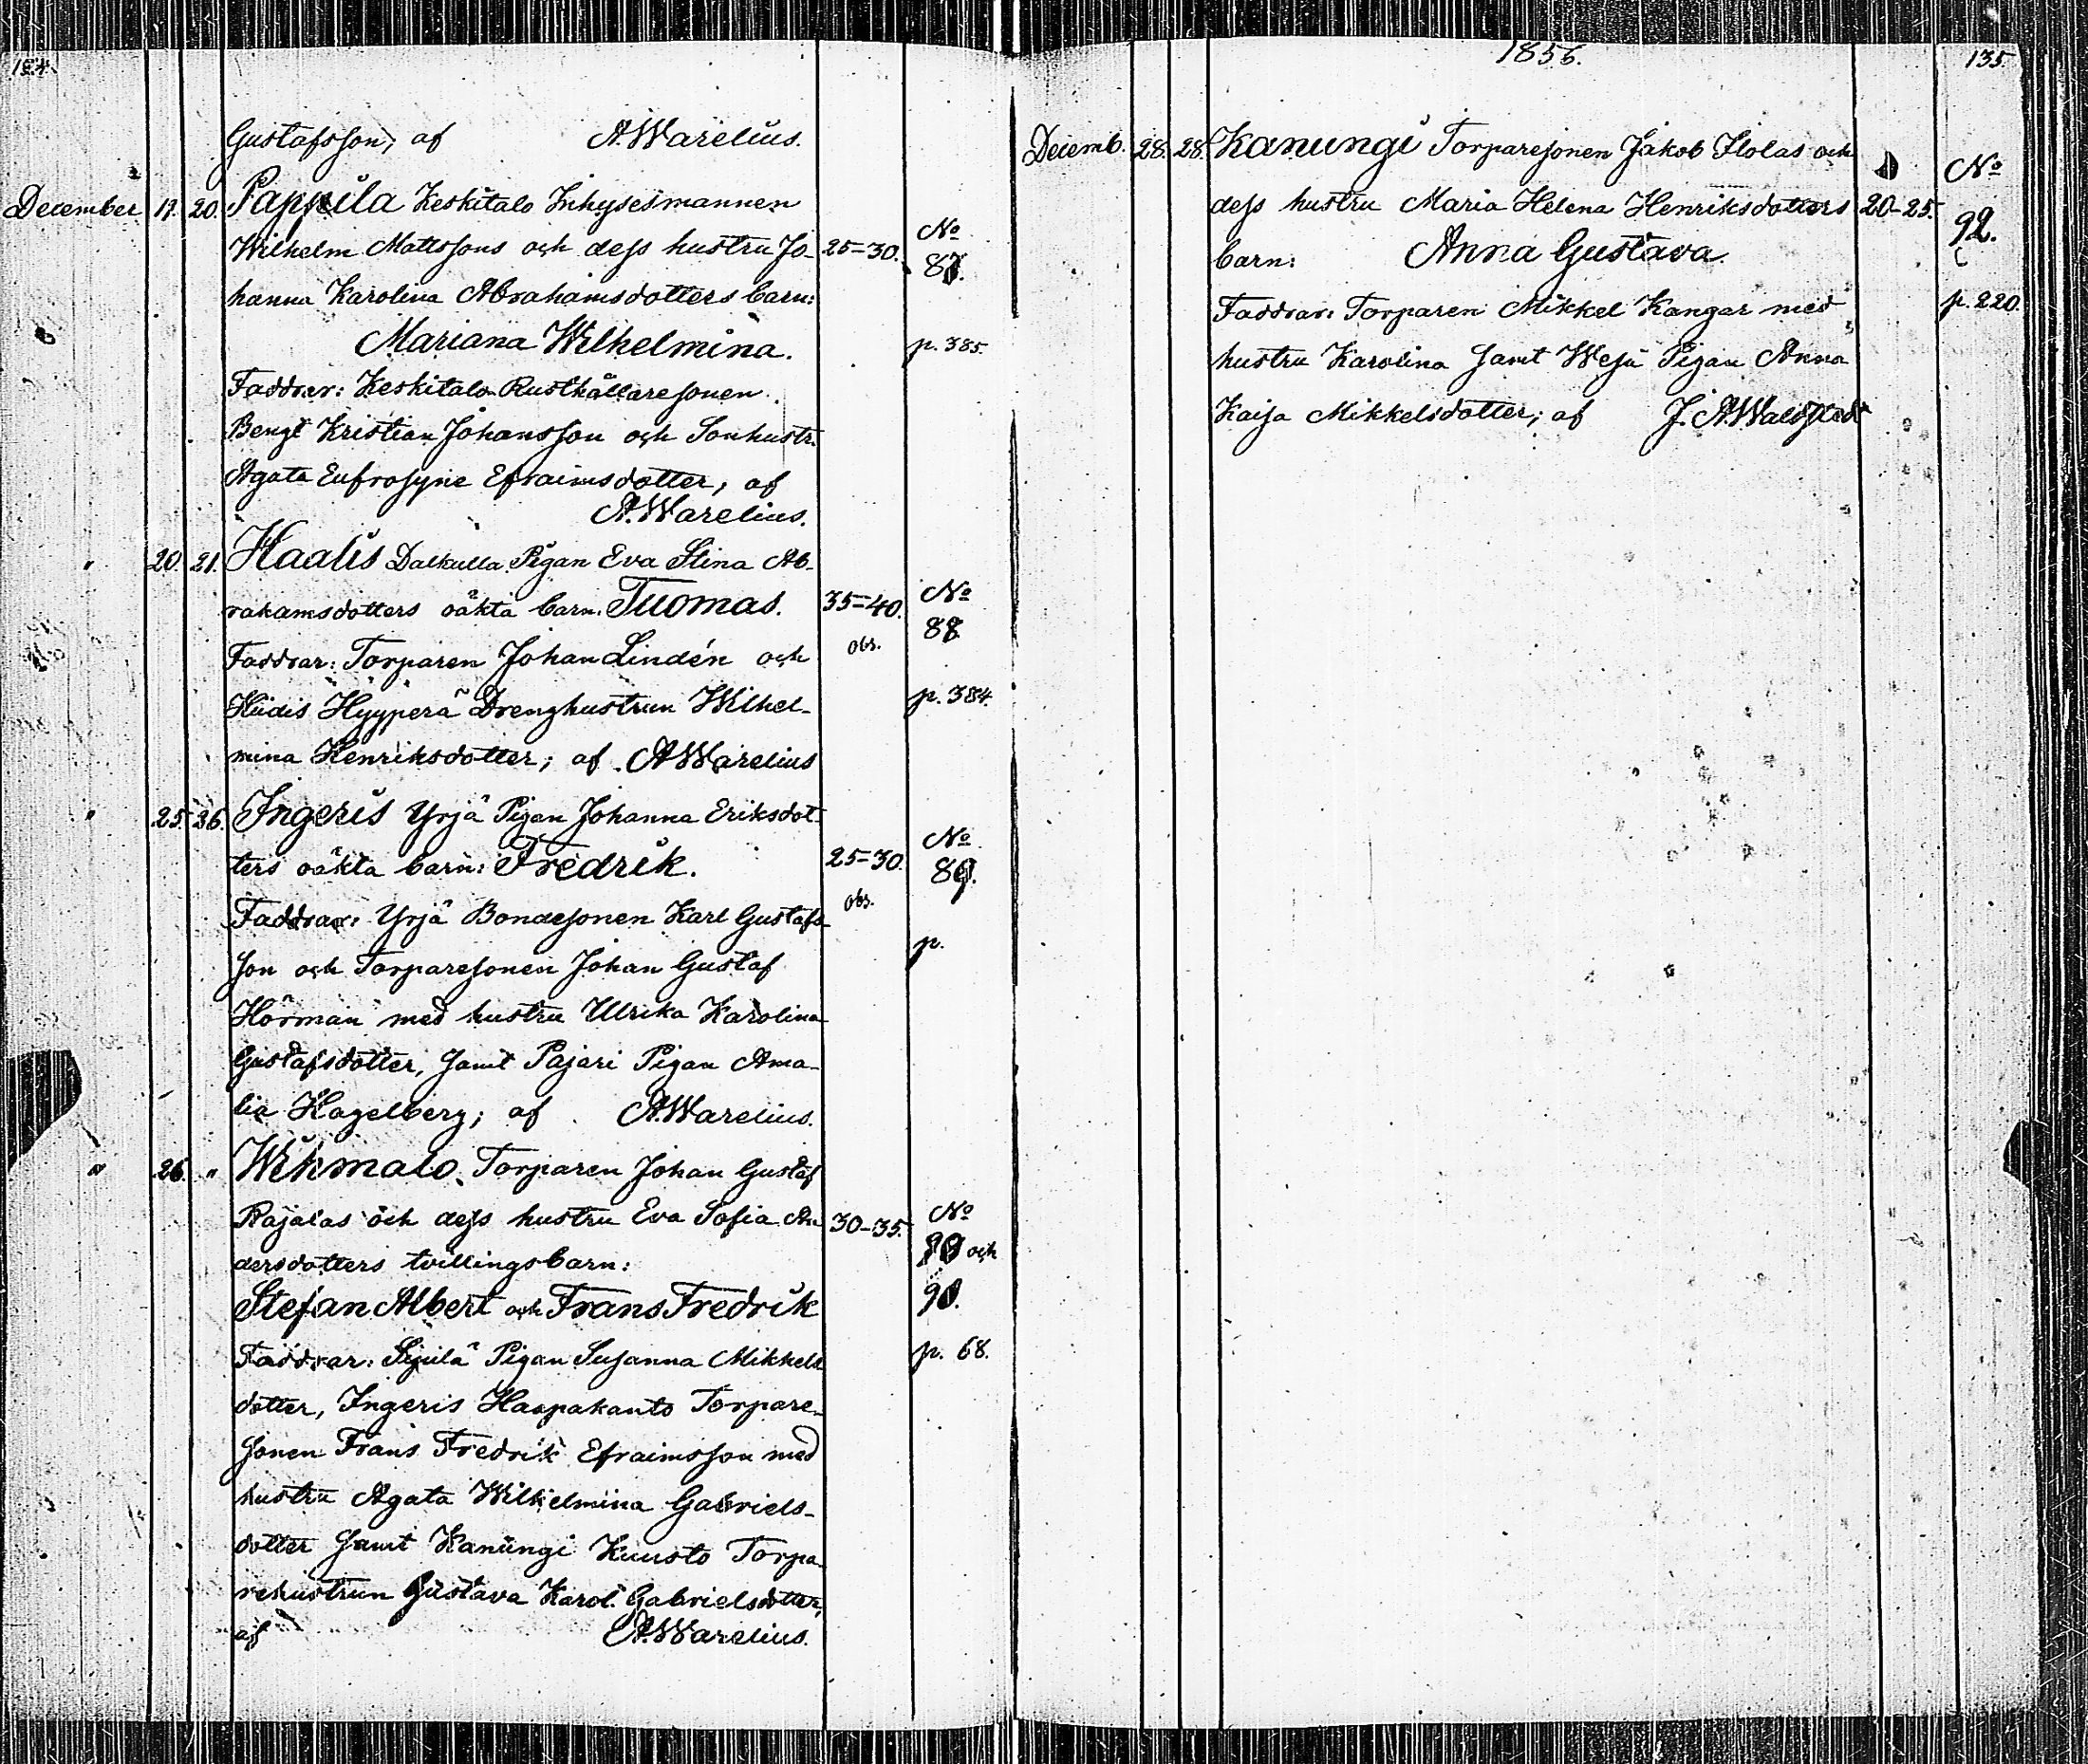 134.
Gustafsson; af A. Warelius.
December 17. 20. Pappila Keskitalo Inhysesmannen
Wilhelm Mattssons och dess hustru Jo- 25=30. No 87.
hanna Karolina Abrahamsdotters barn:
Mariana Wilhelmina. p. 385.
Faddrar: Keskitalo Rusthållaresonen
Bengt Kristian Johansson och Sonhustr.
Agata Eufrosyne Efraimsdotter; af
A. Warelius.
" 20. 21. Haalis Dalkulla Pigan Eva Stina Ab-
rahamsdotters oäkta barn: Tuomas. 35=40. No 88
Faddrar: Torparen Johan Lindén och obs.
Hiidis Hyyperä Drenghustrun Wilhel- p. 384.
mina Henriksdotter; af A Warelius
" 25. 26. Ingeris Yrjä Pigan Johanna Eriksdot-
ters oäkta barn: Fredrik. 25=30. No 89.
Faddrar: Yrjä Bondesonen Karl Gustafs- obs.
son och Torparesonen Johan Gustaf p.
Hörman med hustru Ulrika Karolina
Gustafsdotter, samt Pajari Pigan Ama-
lia Hagelberg; af A. Warelius.
" 26. " Wehmalo. Torparen Johan Gustaf
Rajalas och dess hustru Eva Sofia An 30-35. No
dersdotters tvillingsbarn: och
Stefan Albert och Frans Fredrik 90.
Faddrar: Sipilä Pigan Susanna Mikkels p. 68.
dotter, Ingeris Haapakanto Torpare-
sonen Frans Fredrik Efraimsson med
hustru Agata Wilhelmina Gabriels-
dotter samt Kanungi Kuusto Torpa-
rehustrun Gustava Karol. Gabrielsdotter,
af A. Warelius.
1856. 135.
Decemb. 28. 28. Kanungi Torparesonen Jakob Ilolas och No
dess hustru Maria Helena Henriksdotters 20-25. 92.
barn: Anna Gustava.
Faddrar: Torparen Mikkel Kangar med p. 220.
hustru Karolina samt Wesu Pigan Anna
Kaisa Mikkelsdotter; af J. A. Waldstedt